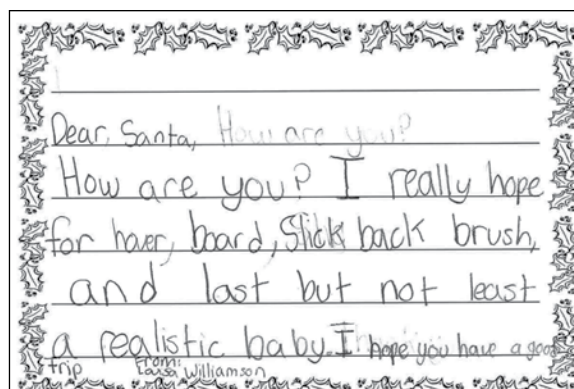 Dear, Santa, How are you?
How are you? I really hope
for hover, board, Slick back brush,
and last but not least
a realistic baby. I hope you have a good
trip From:
Williamson